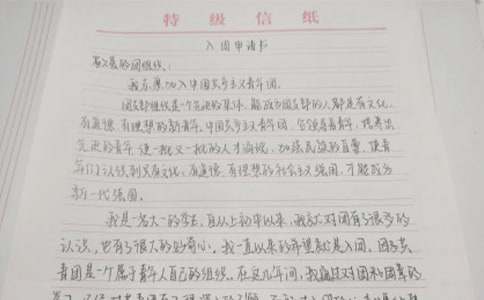 特级信纸
入团申请书
敬爱的团组织:
我志愿加入中国共产主义青年团。
团支部组织是一个先进的集体,能成为团支部的人都是有文化、
有道德、有理想的新青年。中国共产主义青年团,
先进的青年,使一批又一批的人才涌现,加强民族的
年们认识到关有文化、有道德、有理想的社会主义强国,才能成为
新一代强国。
我是一名大一的学生,自从上初中以来,我就对团有了很多的
认识,也有了很大的好奇心。我一直以来的希望就是入团。团
青团是一个属于青年人自己的组织。在这几年间,我通过对团和团章的